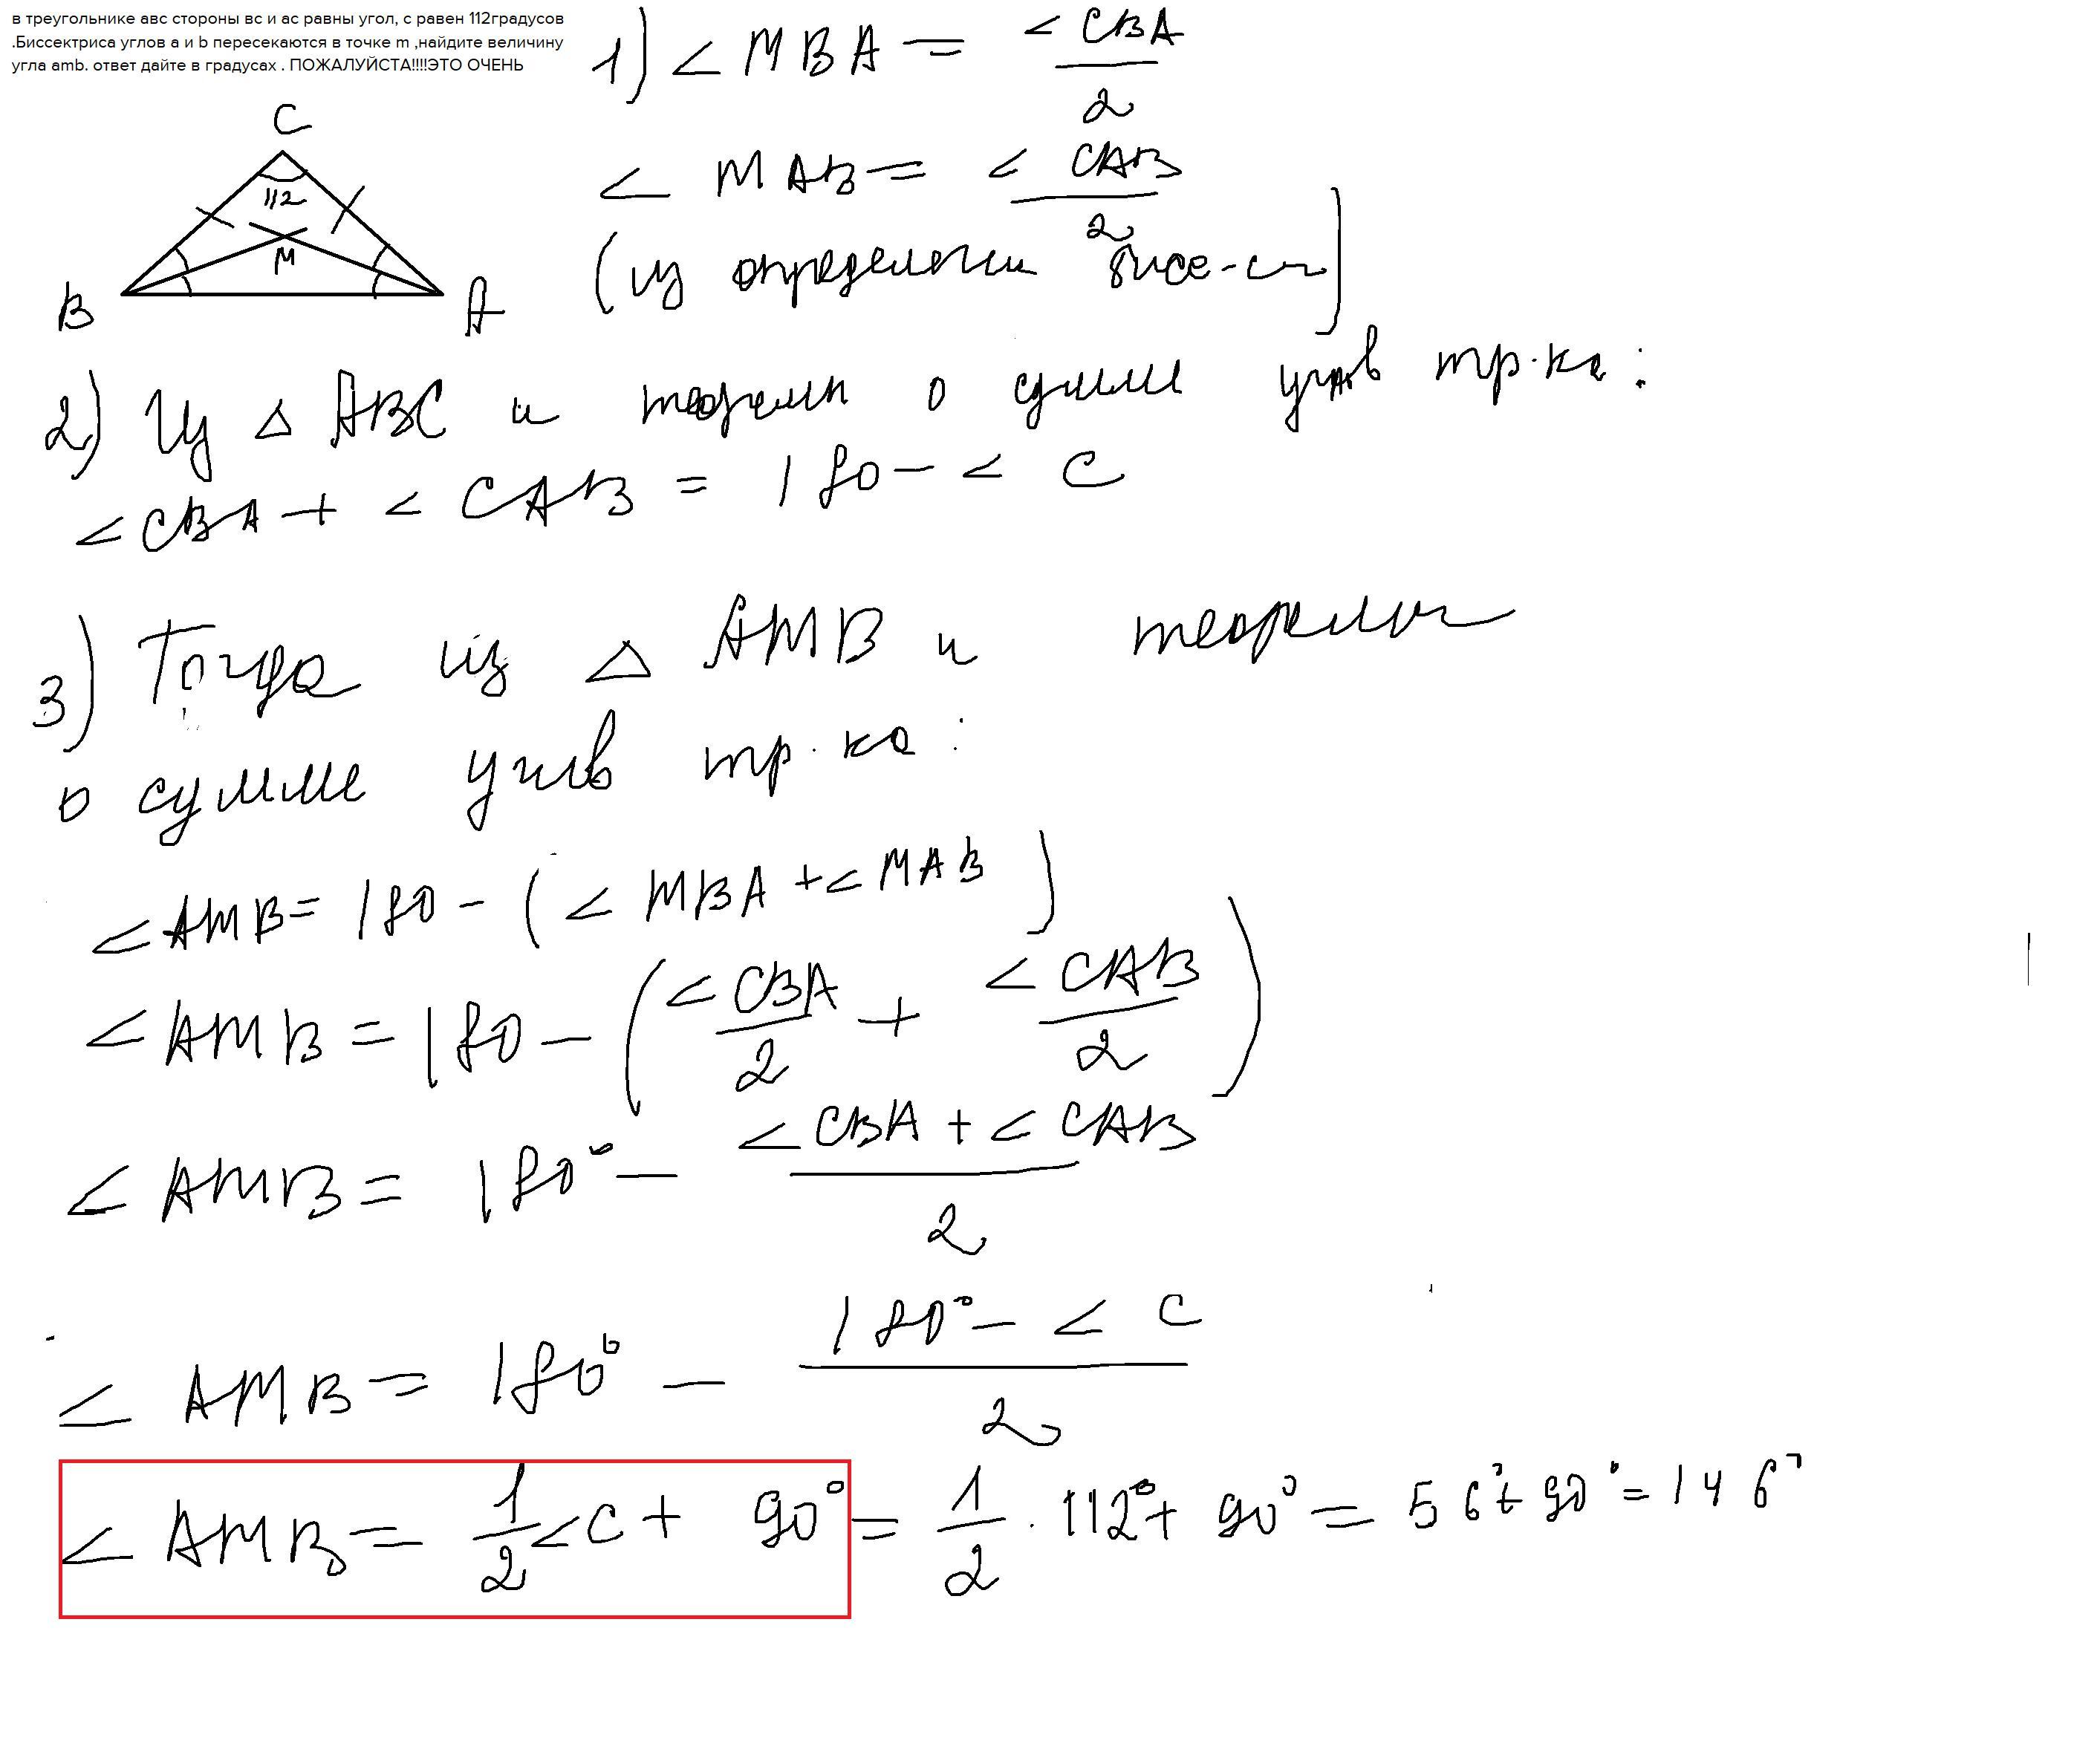 в треугольнике авс стороны вс и ас равны угол, с равен 112градусов
.Биссектриса углов а и b пересекаются в точке m ,найдите величину
угла amb. ответ дайте в градусах . ПОЖАЛУЙСТА!!!!ЭТО ОЧЕНЬ
C
112
M
B
A
1) < MBA = < CBA / 2
< MAB = < CAB / 2
(из определения биссе-сы)
2) Из △ ABC и теоремы о сумме углов тр-ка:
< CBA + < CAB = 180 - < C
3) Тогда из △ AMB и теоремы
о сумме углов тр-ка:
< AMB = 180 - (< MBA + < MAB)
< AMB = 180 - (< CBA / 2 + < CAB / 2)
< AMB = 180° - < CBA + < CAB / 2
< AMB = 180° - 180° - < C / 2
< AMB = 1/2 < C + 90° = 1/2 · 112° + 90° = 56° + 90° = 146°